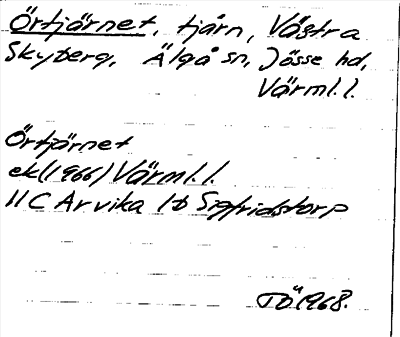 Örtjärnet, tjärn, Västra
Skyberg, Älgå sn, Jösse hd,
Värml. l.
Örtjärnet
ek (1966) Värml. l.
11C Arvika 1b Sigfridstorp
TÖ 1968.